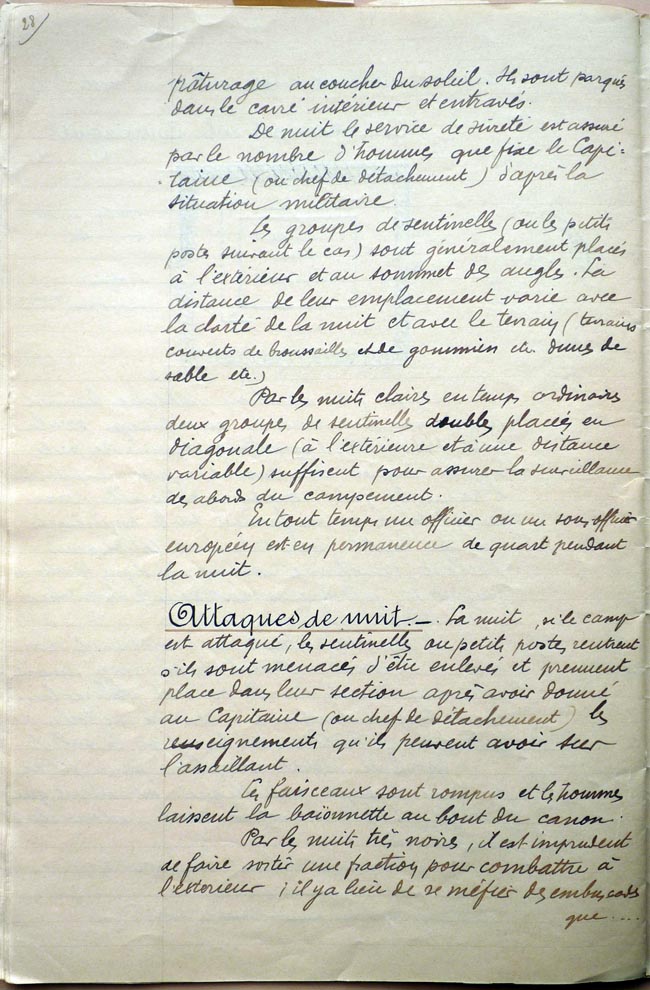 28
pâturage au coucher du soleil. Ils sont parqués
dans le carré intérieur et entravés.
De nuit le service de sûreté est assuré
par le nombre d'hommes que fixe le Capi-
-taine (ou chef de détachement) d'après la
situation militaire.
Les groupes de sentinelles (ou les petits
postes suivant le cas) sont généralement placés
à l'extérieur et au sommet des angles. La
distance de leur emplacement varie avec
la clarté de la nuit et avec le terrain (terrains
couverts de broussailles et de gommiers etc. dunes de
sable etc.)
Par les nuits claires en temps ordinaire
deux groupes de sentinelles doubles placées en
diagonale (à l'extérieure et à une distance
variable) suffisent pour assurer la surveillance
des abords du campement.
En tout temps un officier ou un sous officier
européen est en permanence de quart pendant
la nuit.
Attaques de nuit. — La nuit, si le camp
est attaqué, les sentinelles ou petits postes rentrent
s'ils sont menacés d'être enlevés et prennent
place dans leur section après avoir donné
au Capitaine (ou chef de détachement) les
renseignements qu'ils peuvent avoir sur
l'assaillant.
Les faisceaux sont rompus et les hommes
laissent la baïonnette au bout du canon.
Par les nuits très noires, il est imprudent
de faire sortir une fraction pour combattre à
l'extérieur ; il y a lieu de se méfier des embuscades
que ....